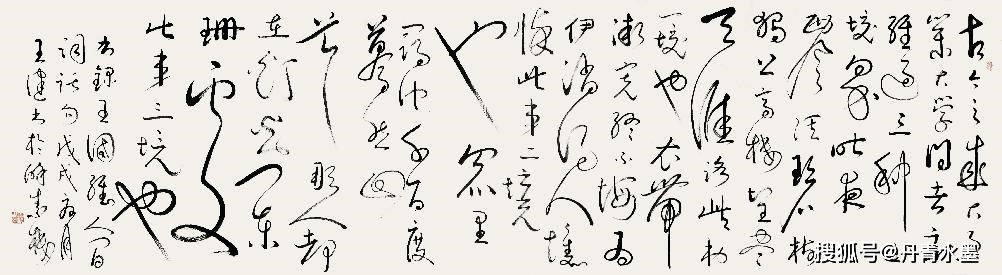 古今之成大事
業大學問者必
經過三種
境界昨夜
西風凋碧樹
獨上高樓望盡
天涯路此第
一境也衣帶
漸寬終不悔為
伊消得人憔
悴此第二境
也眾里
尋他千百度
驀然回
首那人卻
在燈火闌
珊處
此第三境也
錄王國維人間
詞話句戊戌月
王書於樓
搜狐号@丹青水墨